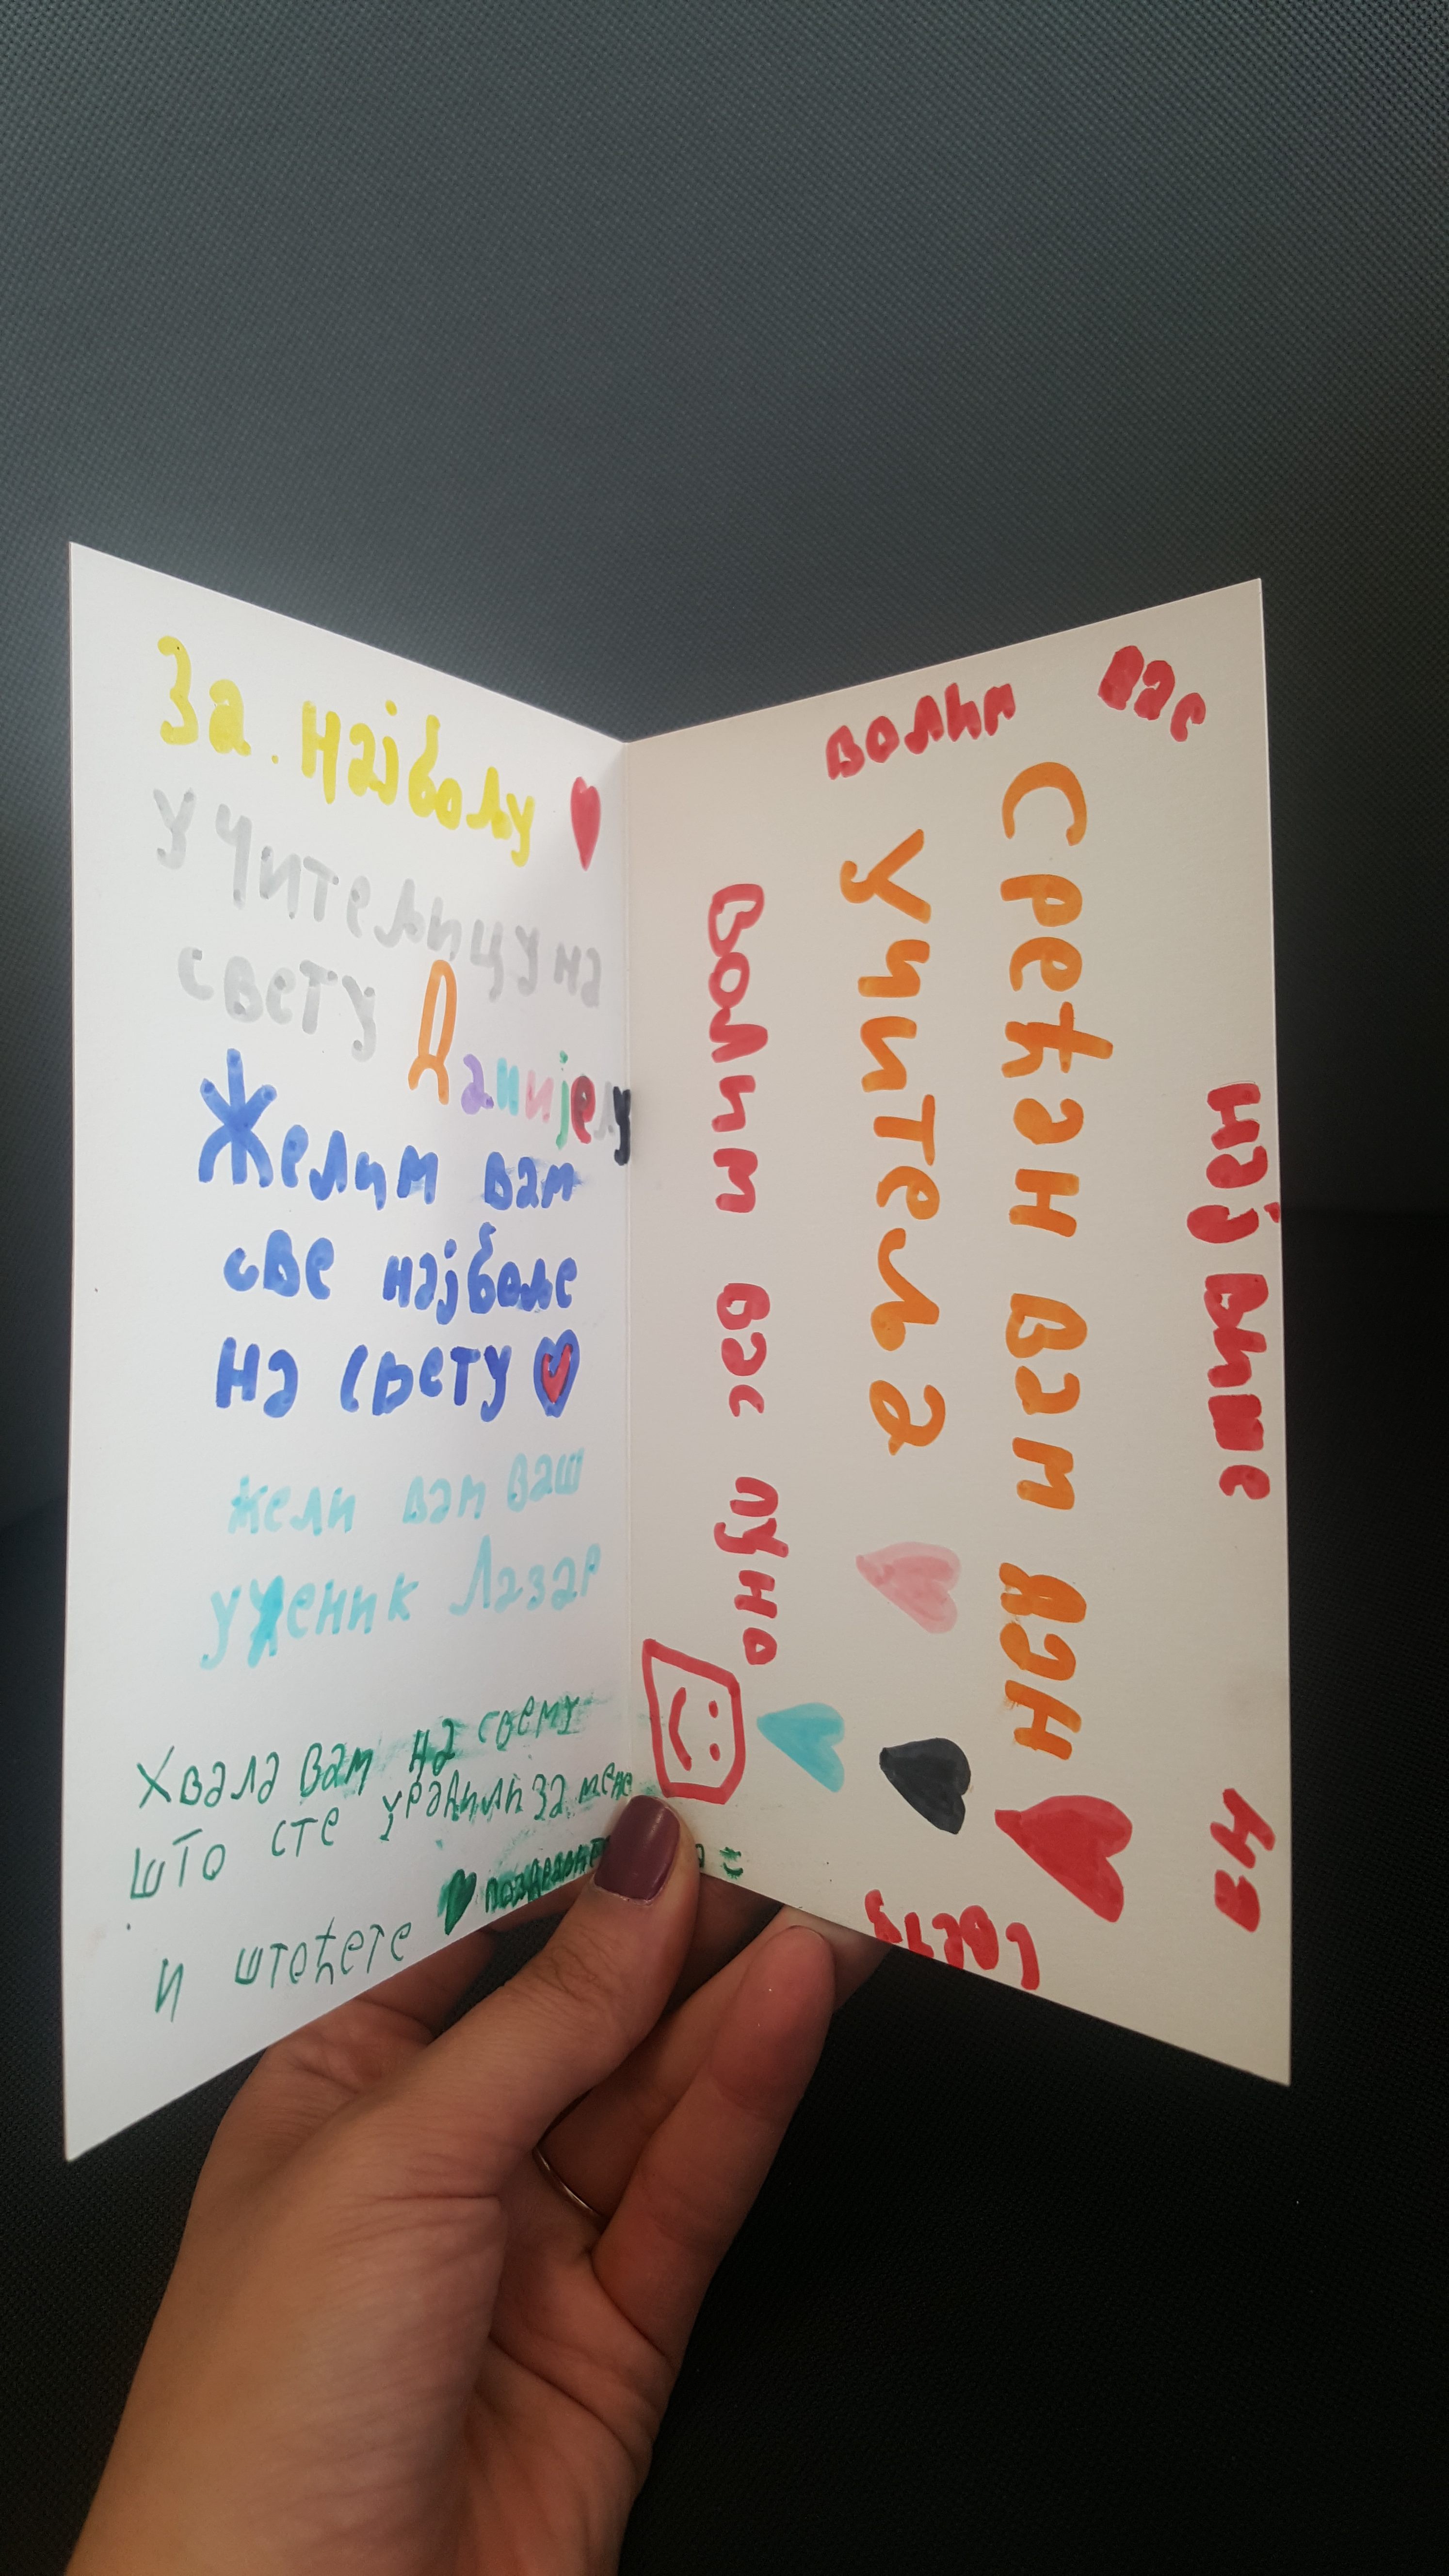 За најбољу
учитељицу на
свету Данијелу
Желим вам
све најбоље
на свету
жели вам ваш
ученик Лазар
Хвала вам на свему
што сте урадили за мене
и штоћете
Срећан вам дан
учитеља
Волим вас пуно
волим
вас
највише
на
свету